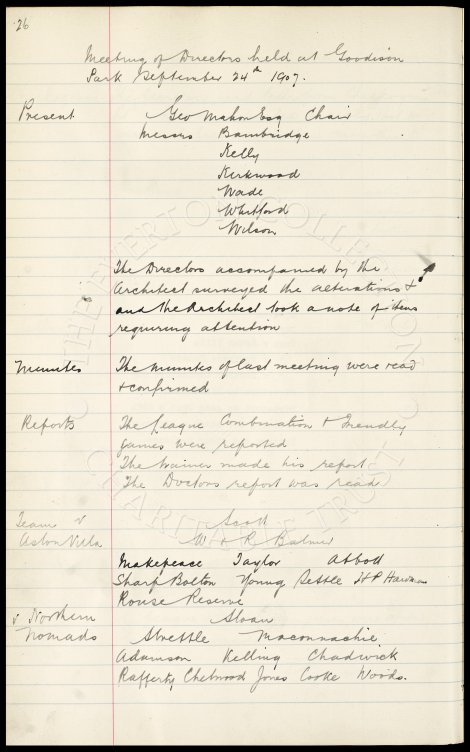 26
Meeting of Directors held at Goodison
Park September 24th 1907.
Present Geo Mahon Esq Chair
Messrs Bainbridge
Kelly
Kirkwood
Wade
Whitford
Wilson
The Directors accompanied by the
Architect surveyed the alterations &
and the Architect took a note of items
requiring attention
Minutes The minutes of last meeting were read
& confirmed
Reports The League Combination & Friendly
games were reported
The trainer made his report
The Doctors report was read
Team v Scott
Aston Villa W & R Balmer
Makepeace Taylor Abbott
Sharp Bolton Young Settle H P Hardman
Rouse Reserve
v Northern Sloan
Nomads Strettle Maconnachie
Adamson Kelling Chadwick
Rafferty Chetwood Jones Cooke Woods.
THE EVERTON COLLECTION
CHARITABLE TRUST